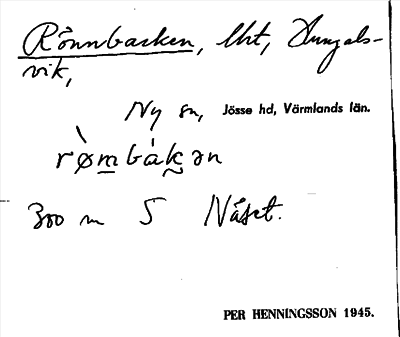 Rönnbacken, lht, Hungals-
vik,
Ny sn, Jösse hd, Värmlands län.
rø̀m̲bák̰ən
300 m S Näset.
PER HENNINGSSON 1945.